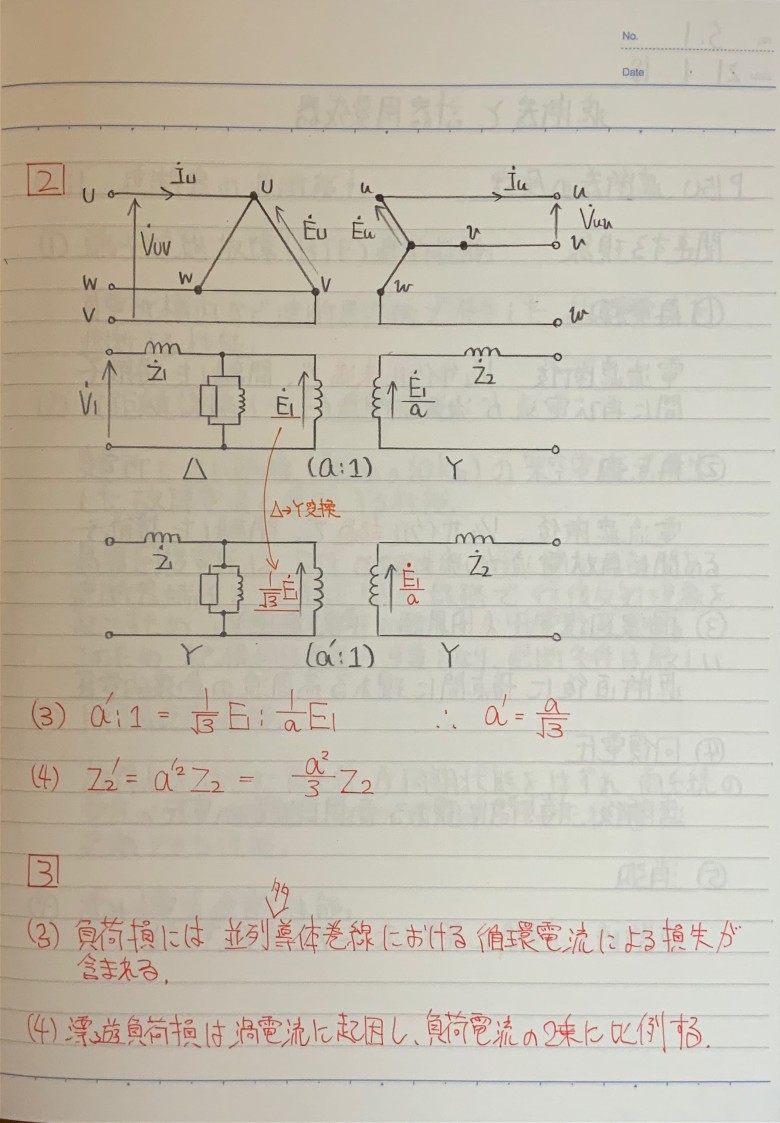 No.
Date
2
U İu U u İu u
V̇uv Ėu Ėu v V̇uv v
W W V w
V w
Ż1 Ż2
V̇1 Ė1 Ė1/a
Δ (a:1) Y
Δ→Y変換
Ż1 Ż2
1/√3 Ė1 Ė1/a
Y (a':1) Y
(3) a':1 = 1/√3 E1 : 1/a E1 ∴ a' = a/√3
(4) Z2' = a'² Z2 = a²/3 Z2
3
多
(3) 負荷損には 並列導体巻線における循環電流による損失が
含まれる.
(4) 漂遊負荷損は渦電流に起因し、負荷電流の2乗に比例する.